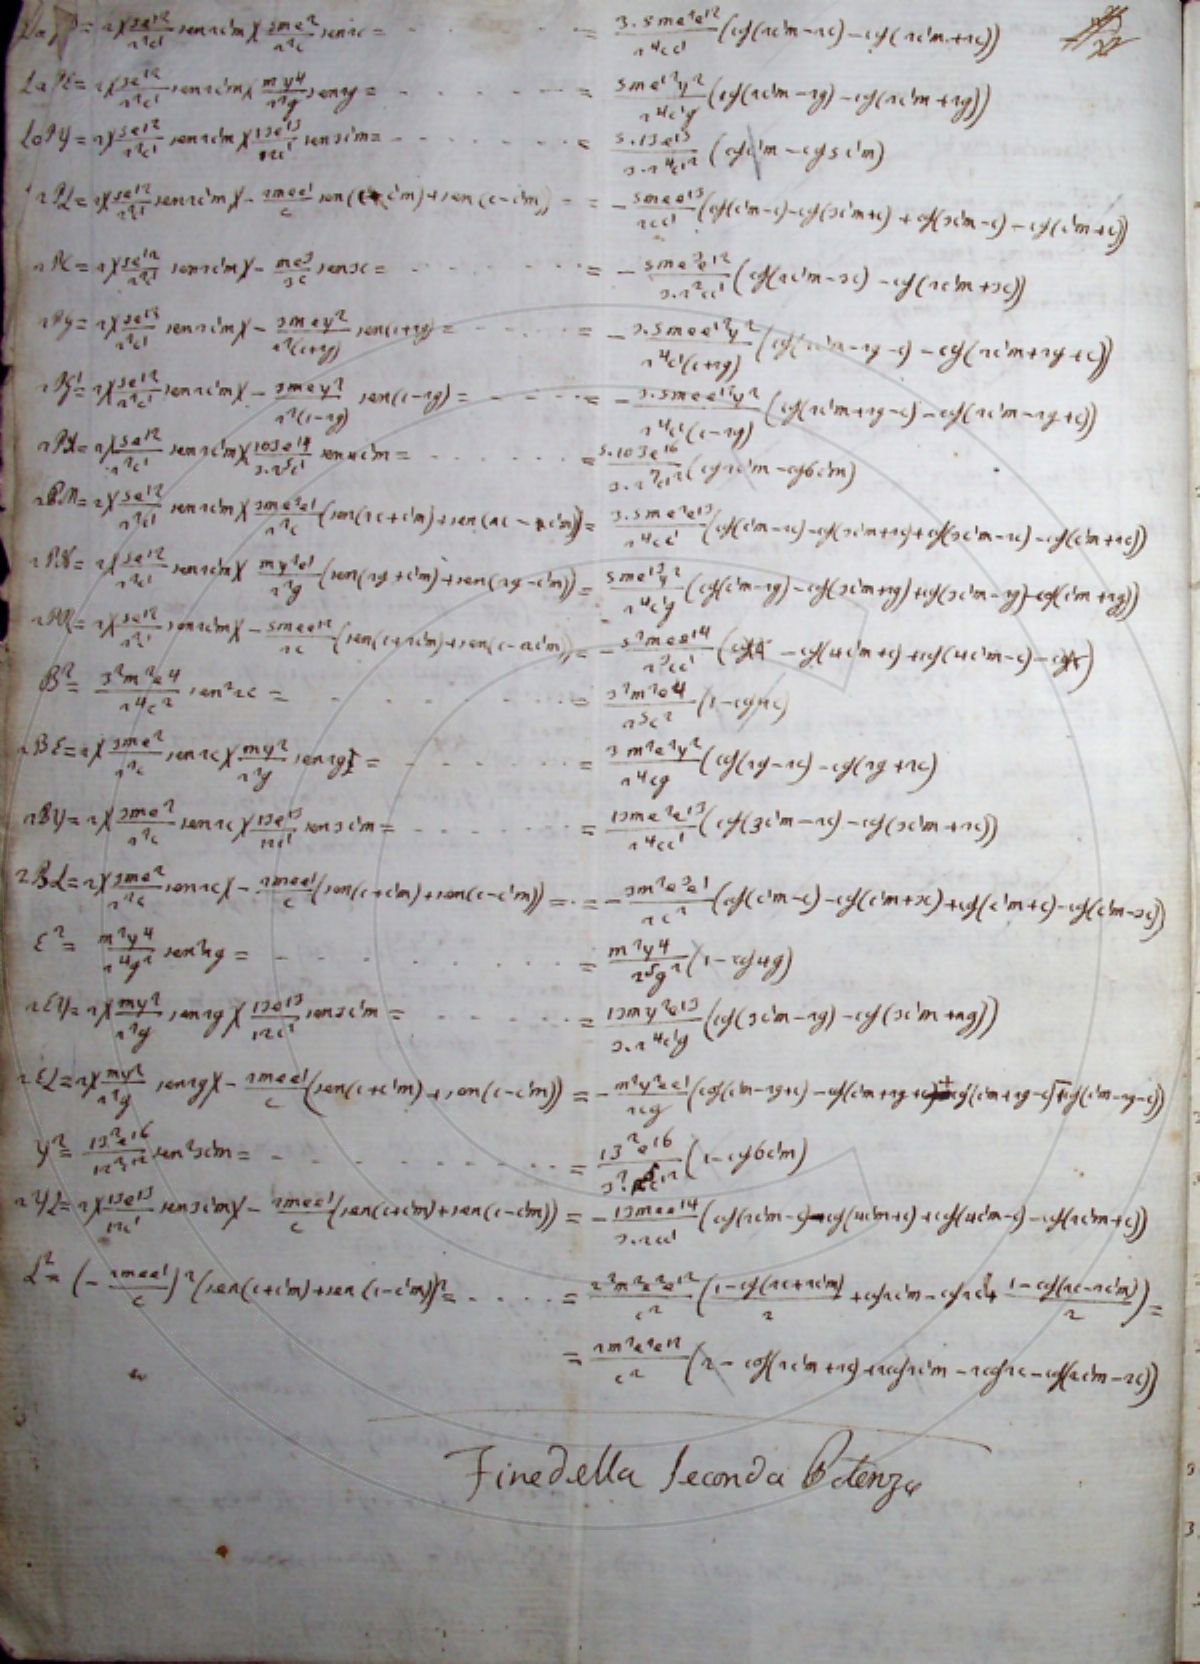 = 2 × 5e'²/2²c' sen 2c'm × 3me²/2²c sen 2c = . . . . = 3.5me²e'²/2⁴cc' (cos(2c'm-2c) - cos(2c'm+2c))
= 2 × 5e'²/2²c' sen 2c'm × my²/2²g sen 2g = . . . . = 5me'²y²/2⁴c'g (cos(2c'm-2g) - cos(2c'm+2g))
= 2 × 5e'²/2²c' sen 2c'm × 13e'³/12c' sen 3c'm = . . . . = 5.13e'⁵/3.2⁴c'² (cos c'm - cos 5c'm)
= 2 × 5e'²/2²c' sen 2c'm × - 2mee'/c (sen(c+c'm) + sen(c-c'm)) = - 5mee'³/2cc' (cos(c'm-c) - cos(3c'm+c) + cos(3c'm-c) - cos(c'm+c))
= 2 × 5e'²/2²c' sen 2c'm × - me³/3c sen 3c = . . . . = - 5me³e'²/3.2²cc' (cos(2c'm-3c) - cos(2c'm+3c))
= 2 × 5e'²/2²c' sen 2c'm × - 3mey²/2²(c+2g) sen(c+2g) = . . . . = - 3.5mee'²y²/2⁴c'(c+2g) (cos(2c'm-2g-c) - cos(2c'm+2g+c))
= 2 × 5e'²/2²c' sen 2c'm × - 3mey²/2²(c-2g) sen(c-2g) = . . . . = - 3.5mee'²y²/2⁴c'(c-2g) (cos(2c'm+2g-c) - cos(2c'm-2g+c))
= 2 × 5e'²/2²c' sen 2c'm × 103e'⁴/3.2⁵c' sen 4c'm = . . . . = 5.103e'⁶/3.2⁷c'² (cos 2c'm - cos 6c'm)
= 2 × 5e'²/2²c' sen 2c'm × 3me²e'/2²c (sen(2c+c'm) + sen(2c-c'm)) = 3.5me²e'³/2⁴cc' (cos(c'm-2c) - cos(3c'm+2c) + cos(3c'm-2c) - cos(c'm+2c))
= 2 × 5e'²/2²c' sen 2c'm × my²e'/2²g (sen(2g+c'm) + sen(2g-c'm)) = 5me'³y²/2⁴c'g (cos(c'm-2g) - cos(3c'm+2g) + cos(3c'm-2g) - cos(c'm+2g))
= 2 × 5e'²/2²c' sen 2c'm × - 5mee'²/2c (sen(c+2c'm) + sen(c-2c'm)) = - 5²mee'⁴/2³cc' ( - cos(4c'm+c) + cos(4c'm-c) - )
B² = 3²m²e⁴/2⁴c² sen²2c = . . . . = 3²m²e⁴/2⁵c² (1 - cos 4c)
2BE = 2 × 3me²/2²c sen 2c × my²/2²g sen 2g = . . . . = 3m²e²y²/2⁴cg (cos(2g-2c) - cos(2g+2c))
2BY = 2 × 3me²/2²c sen 2c × 13e'³/12c' sen 3c'm = . . . . = 13me²e'³/2⁴cc' (cos(3c'm-2c) - cos(3c'm+2c))
2BL = 2 × 3me²/2²c sen 2c × - 2mee'/c (sen(c+c'm) + sen(c-c'm)) = . = - 3m²e³e'/2c² (cos(c'm-c) - cos(c'm+3c) + cos(c'm+c) - cos(c'm-3c))
E² = m²y⁴/2⁴g² sen²2g = . . . . = m²y⁴/2⁵g² (1 - cos 4g)
2EY = 2 × my²/2²g sen 2g × 13e'³/12c' sen 3c'm = . . . . = 13my²e'³/3.2⁴c'g (cos(3c'm-2g) - cos(3c'm+2g))
2EL = 2 × my²/2²g sen 2g × - 2mee'/c (sen(c+c'm) + sen(c-c'm)) = - m²y²ee'/2cg (cos(c'm-2g+c) - cos(c'm+2g+c) - cos(c'm+2g-c) + cos(c'm-2g-c))
Y² = 13²e'⁶/12²c'² sen²3c'm = . . . . = 13²e'⁶/3².2⁵c'² (1 - cos 6c'm)
2YL = 2 × 13e'³/12c' sen 3c'm × - 2mee'/c (sen(c+c'm) + sen(c-c'm)) = - 13mee'⁴/3.2cc' (cos(2c'm-c) - cos(4c'm+c) + cos(4c'm-c) - cos(2c'm+c))
L² = (- 2mee'/c)² (sen(c+c'm) + sen(c-c'm))² = . . . . = 2²m²e²e'²/c² (1-cos(2c+2c'm)/2 + cos 2c'm - cos 2c + 1-cos(2c-2c'm)/2) =
= 2m²e²e'²/c² (2 - cos(2c'm+2c) + 2cos 2c'm - 2cos 2c - cos(2c'm-2c))
Fine della Seconda Potenza